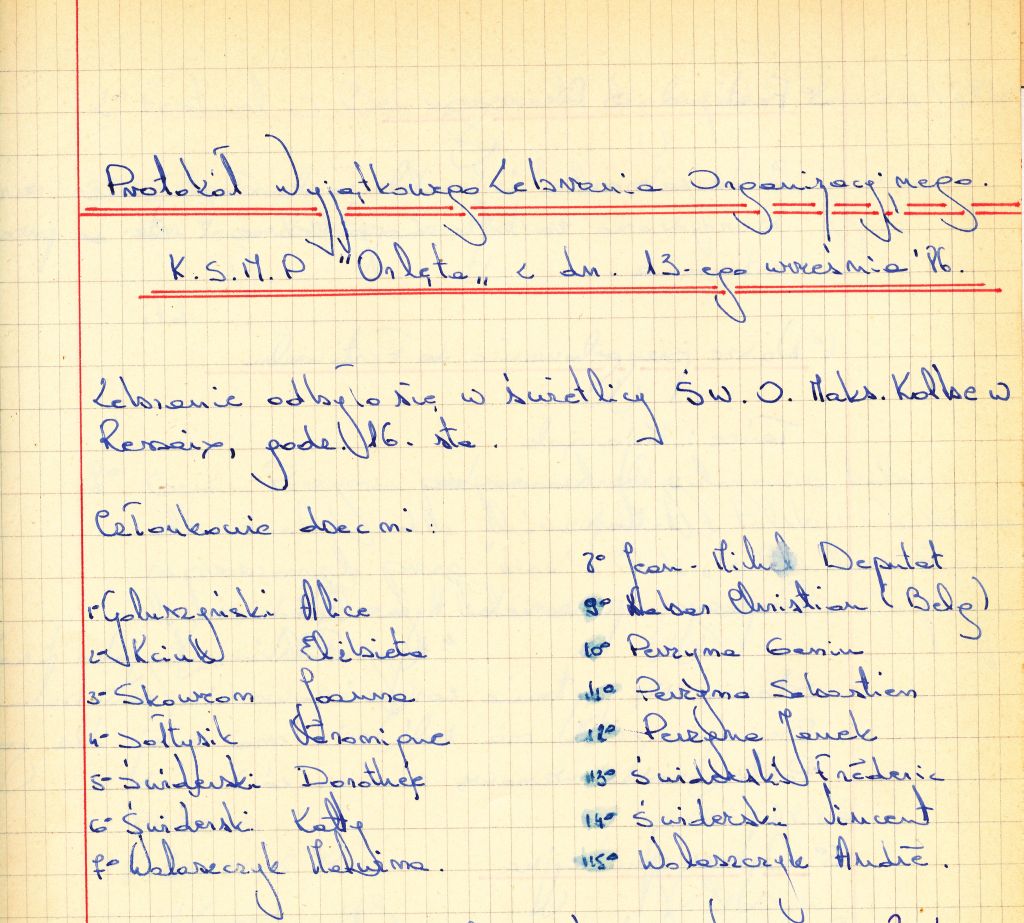 Protokół Wyjątkowego Zebrania Organizacyjnego.
K.S.M.P "Orlęta„ z dn. 13-ego września '86.
Zebranie odbyło się w świetlicy Św. O. Maks. Kolbe w
Ressaix, godz. 16. sta.
Członkowie obecni :
1- Goluszyński Alice
2- Kciuk Elżbieta
3- Skowron Joanna
4- Sołtysik Véronique
5- Świderski Dorothée
6- Świderski Katty
7° Walaszczyk
8° Jean-Michel Deputat
9° Christian (Belg)
10° Perzyna Geniu
11° Perzyna Sebastien
12° Perzyna Janek
13° Świderski Fréderic
14° Świderski Vincent
15° Walaszczyk André.